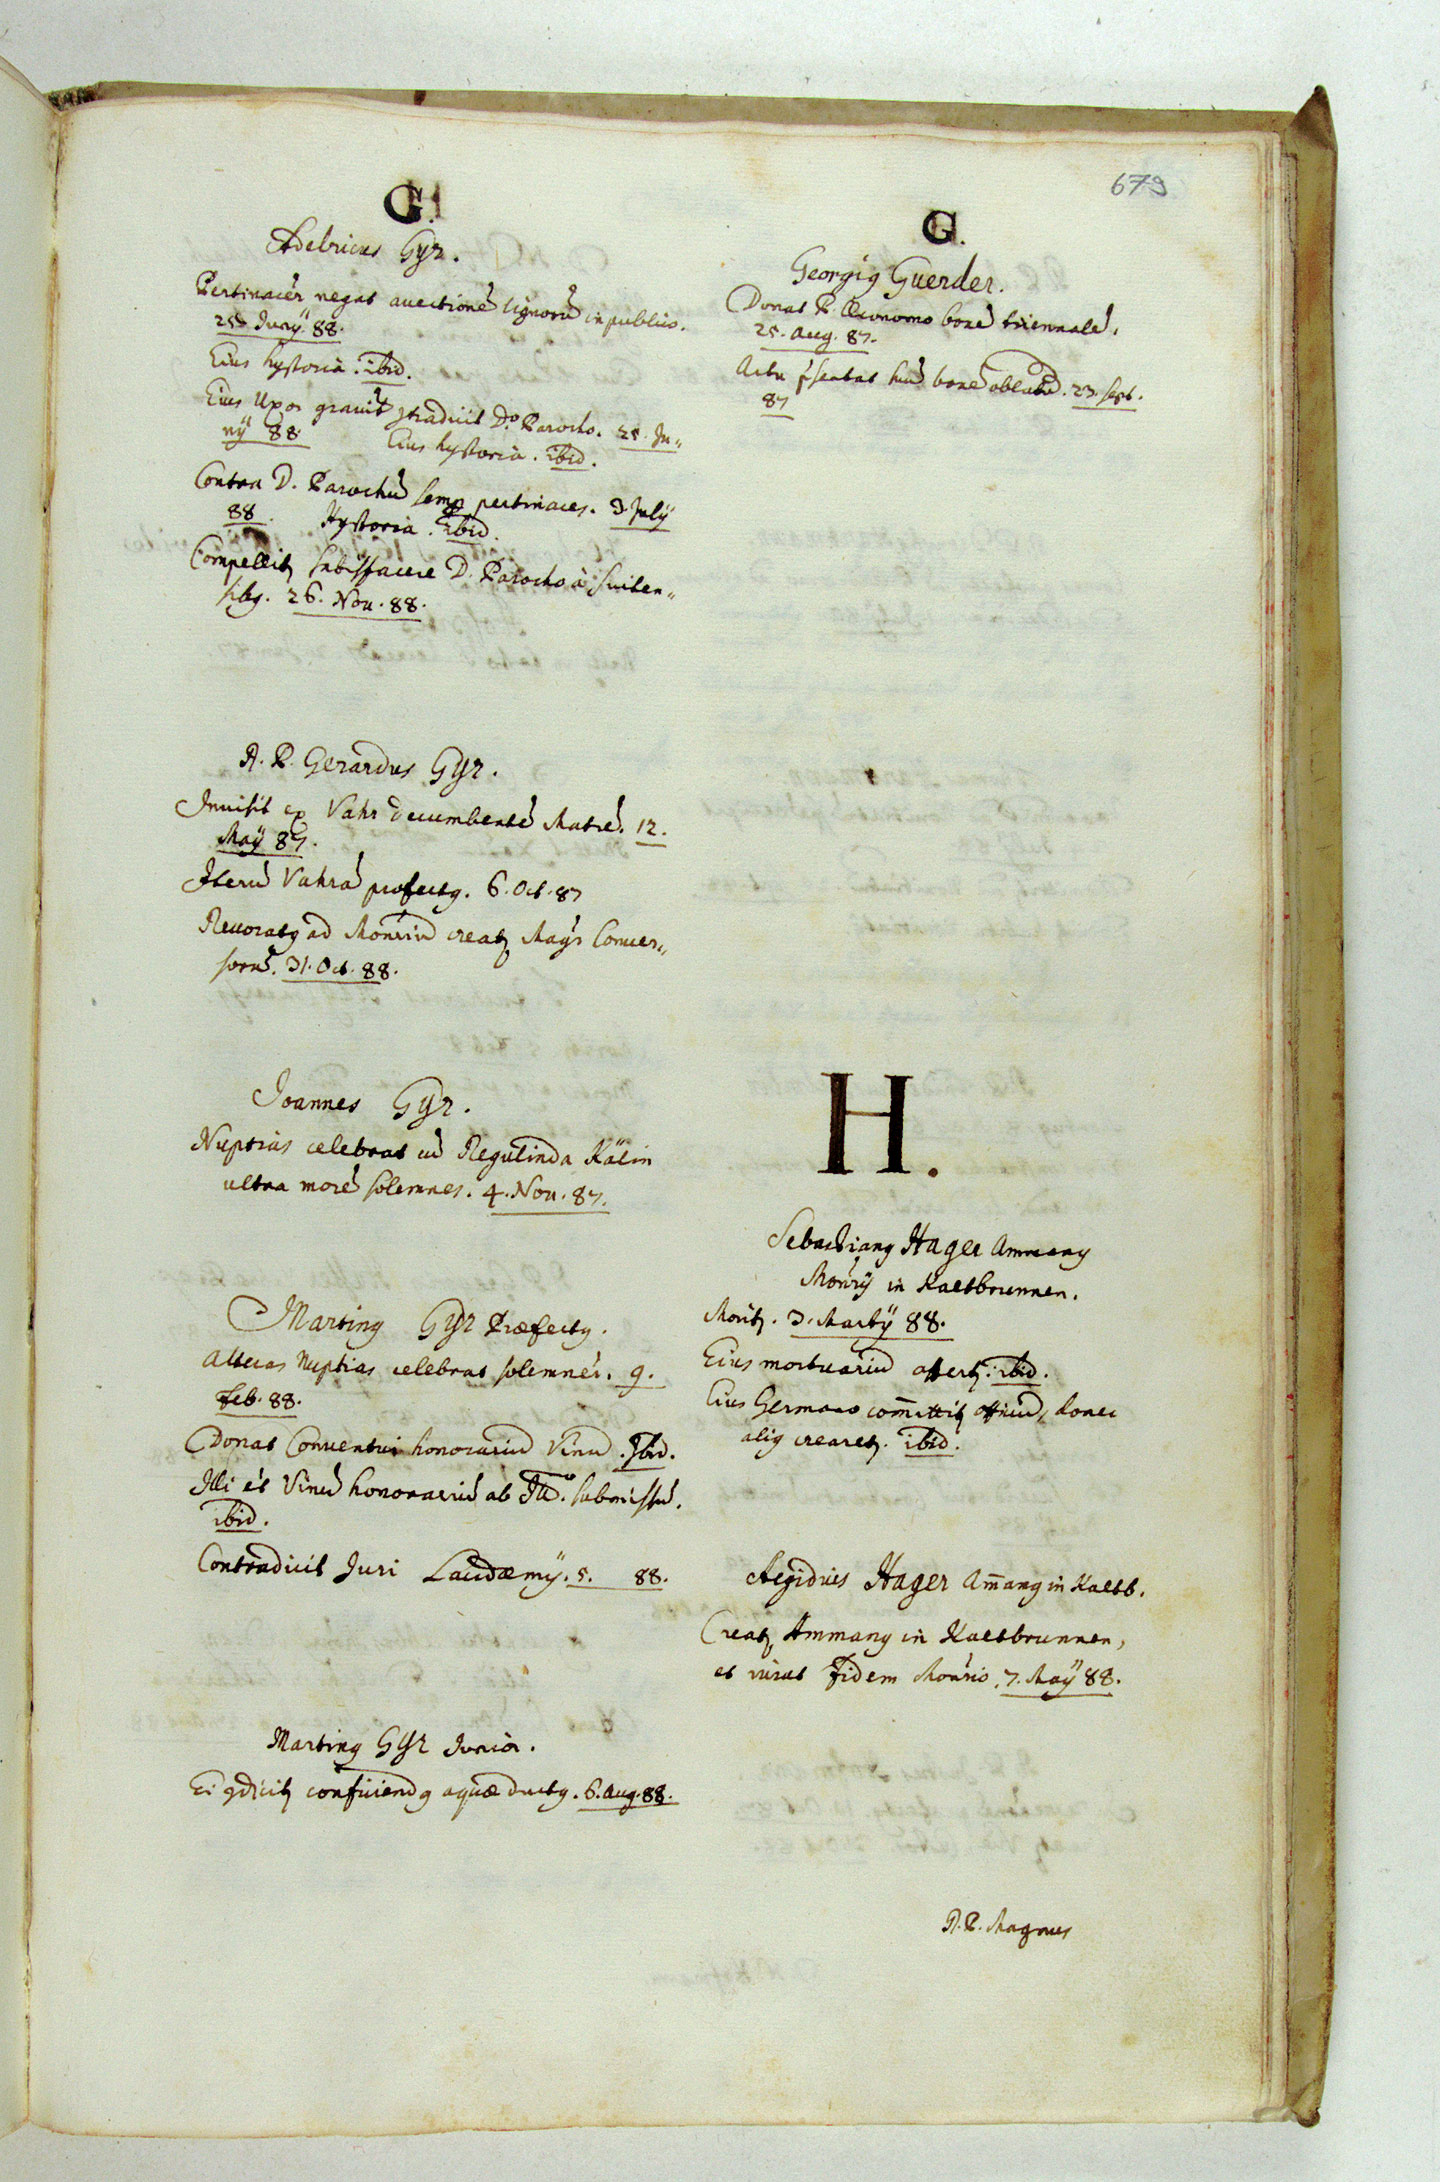 679
G.
Adelricus Gÿr.
Pertinacér negat auectioné lignorú in publico.
25 Junÿ. 88.
Eius hystoria. ibid.
Eius Uxor grauit 9tradicit D.o Parocho. 25. Ju-
nÿ 88. Eius hystoria. ibid.
Contra D. Parochú semp pertinaces. 3. Julÿ
88. Hystoria. ibid.
Compellit satisfacere D. Parocho à Suiten-
sib9. 26. Nou. 88.
R. P. Gerardus Gÿr.
Inuisit ex Vahr decumbenté Matré. 12.
Maÿ 87.
Iterú Vahrá profect9. 6. Oct. 87
Reuocat9 ad Monriú creat Magr Conuer-
sorú. 31. Oct. 88.
Joannes Gÿr.
Nuptias celebrat cú Regulinda Kälin
ultra moré solemnes. 4. Nou. 87.
Martin9 Gÿr Præfect9.
Alteras Nuptias celebrat solemnér. 9.
Feb. 88.
Donat Conuentui honorariú Vinú. Ibid.
Illi et Vinú honorariú ab Ill.o submissú.
ibid.
Contradicit Juri Laudæmÿ. 5. 88.
Martin9 Gÿr Junior.
Ei 9dicit conficiend9 aquæduct9. 6. Aug. 88.
G.
Georgi9 Guerder.
Donat P. Œconomo boué triennalé.
25. Aug. 87.
Actu pñsentat húc boué oblatú. 23. Sept.
87
H.
Sebastian9 Hager Amman9
Monrÿ in Kaltbrunnen.
Morit. 3. Martÿ 88.
Eius mortuariú offert. ibid.
Eius Germano com̄ittit officiú, donec
aliq crearet. ibid.
Aegidius Hager Am̄an9 in Kaltb.
Creat Amman9 in Kaltbrunnen,
et iurat Fidem Monrio. 7. Maÿ 88.
R. P. Magnus